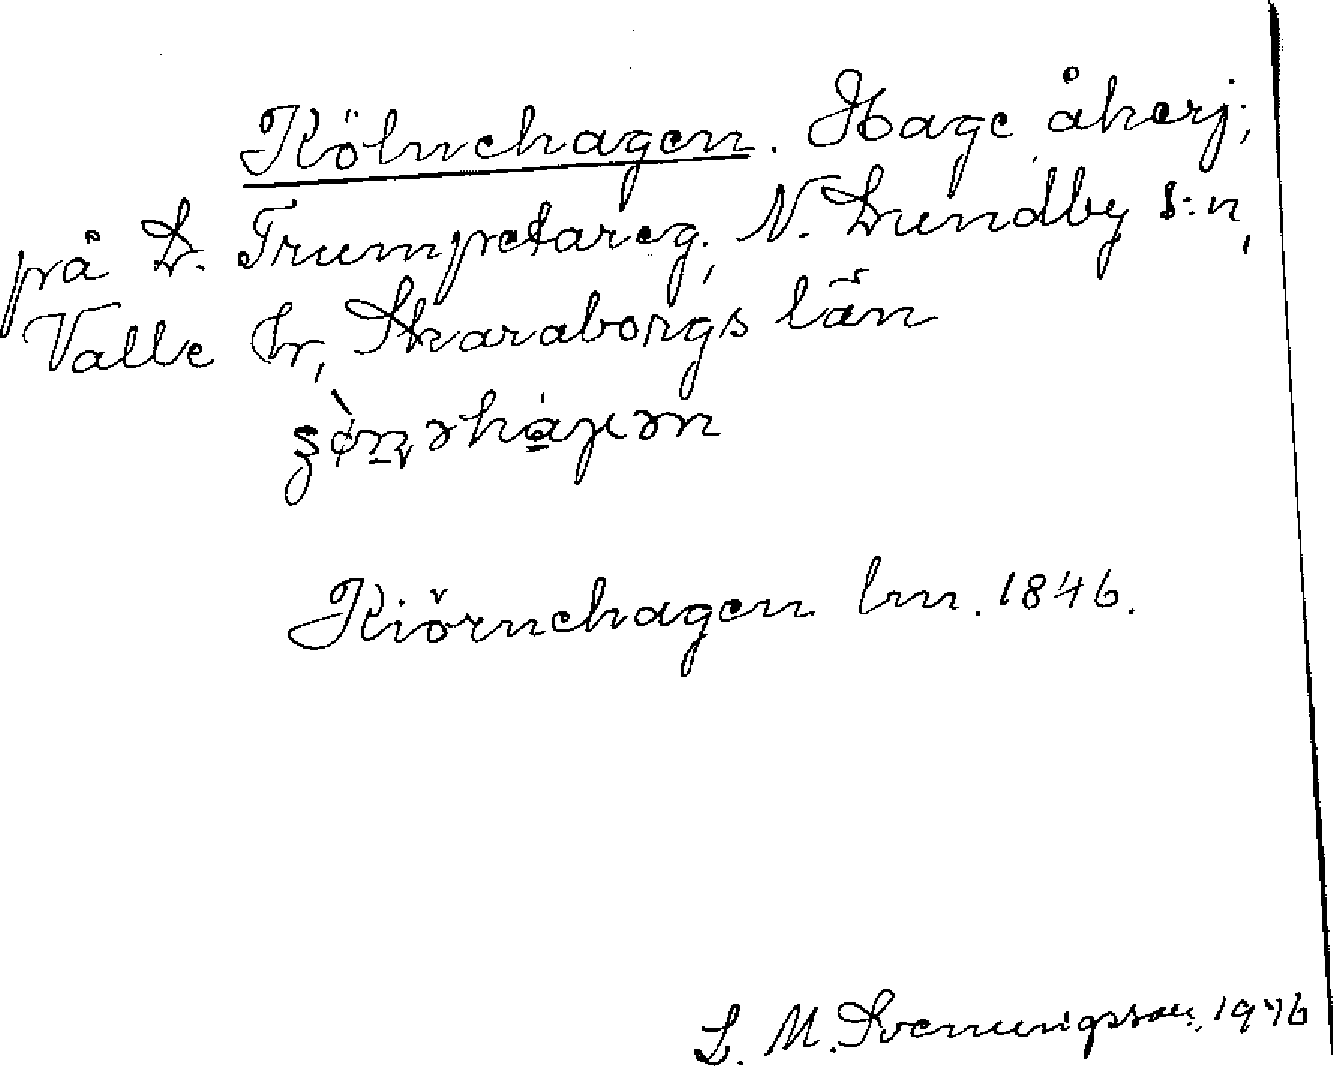 Kölnehagen. Hage åkerj;
på D. Trumpetareg. N. Lundby s:n,
Valle hr, Skaraborgs län
Kiörnehagen lm. 1846.
L. M. Svenungsson, 1946